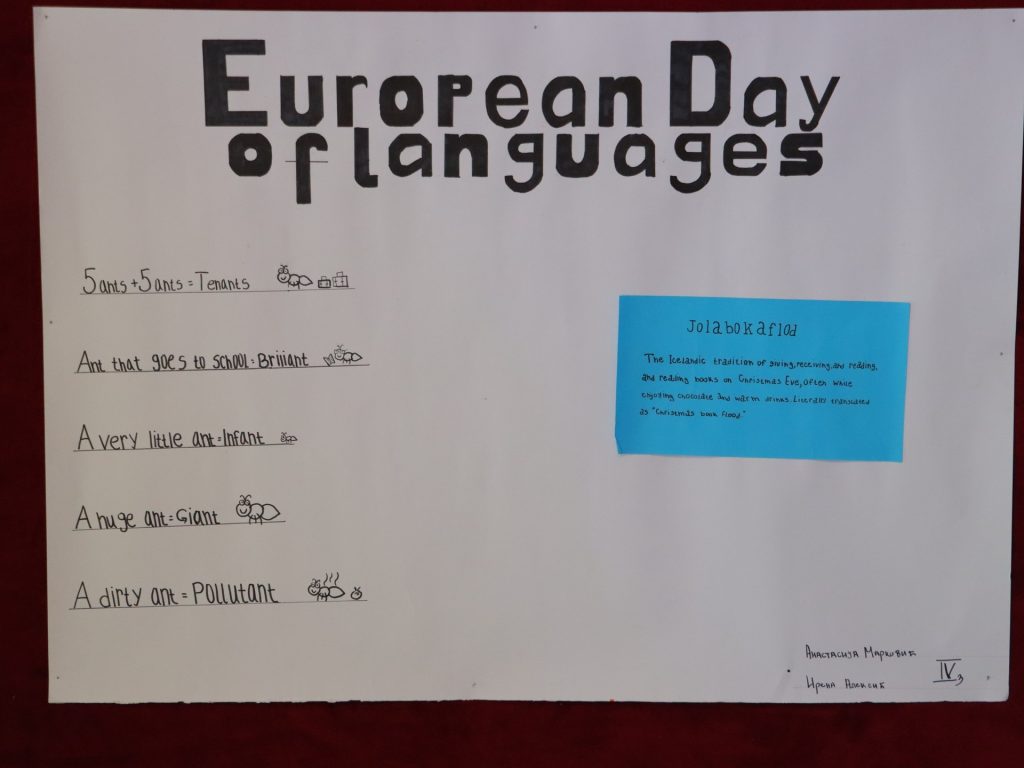 European Day
of languages
5 ants + 5 ants = Tenants
Ant that goes to school = Briiiant
A very little ant = Infant
A huge ant = Giant
A dirty ant = Pollutant
Jolabokaflod
The Icelandic tradition of giving, receiving, and reading,
and reading books on Christmas Eve, often while
enjoying chocolate and warm drinks. Literally translated
as "Christmas book flood."
Анастасија Марковић
Ирена Алексић
IV3